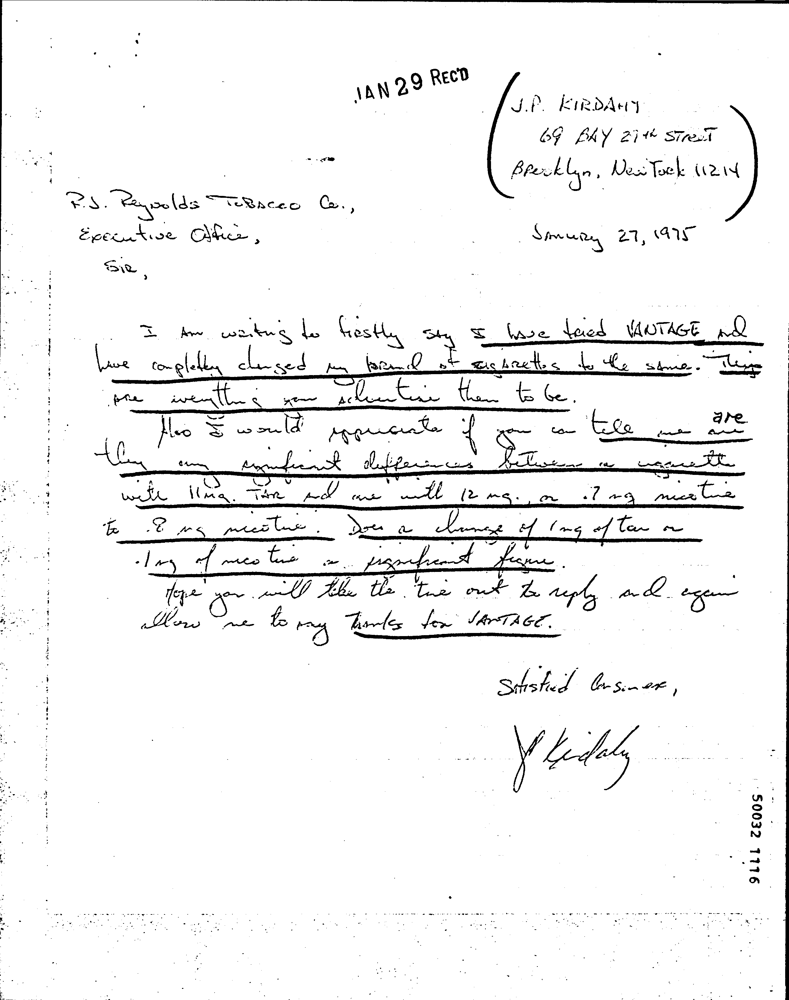 JAN 29 REC'D
J.P. KIRDAHY
69 BAY 29th Street
Brooklyn, New York 11214
R.J. Reynolds Tobacco Co.,
Executive Office,
January 27, 1975
Sir,
I am writing to firstly say I have tried VANTAGE and
have completely changed my brand of cigarettes to the same. They
are everything you advertise them to be.
Also I would appreciate if you can tell me are
they any significant differences between a cigarette
with 11mg. TAR and one with 12 mg., or .7 mg nicotine
to .8 mg nicotine. Does a change of 1mg of tar or
.1mg of nicotine a significant figure.
Hope you will take the time out to reply and again
allow me to say Thanks for VANTAGE.
Satisfied Consumer,
JP Kirdahy
50032 1116